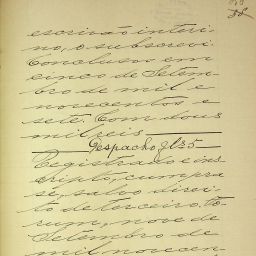 escrivão interi-
no, o subscrevi.
Conclusos em
cinco de Setem-
bro de mil e
novecentos e
sete. Com dous
mil reis
Despacho fl 35
Registrado e ins-
cripto, cumpra
se, salvo direi-
to de terceiro, to-
rum, nove de
Setembro de
mil novecen-